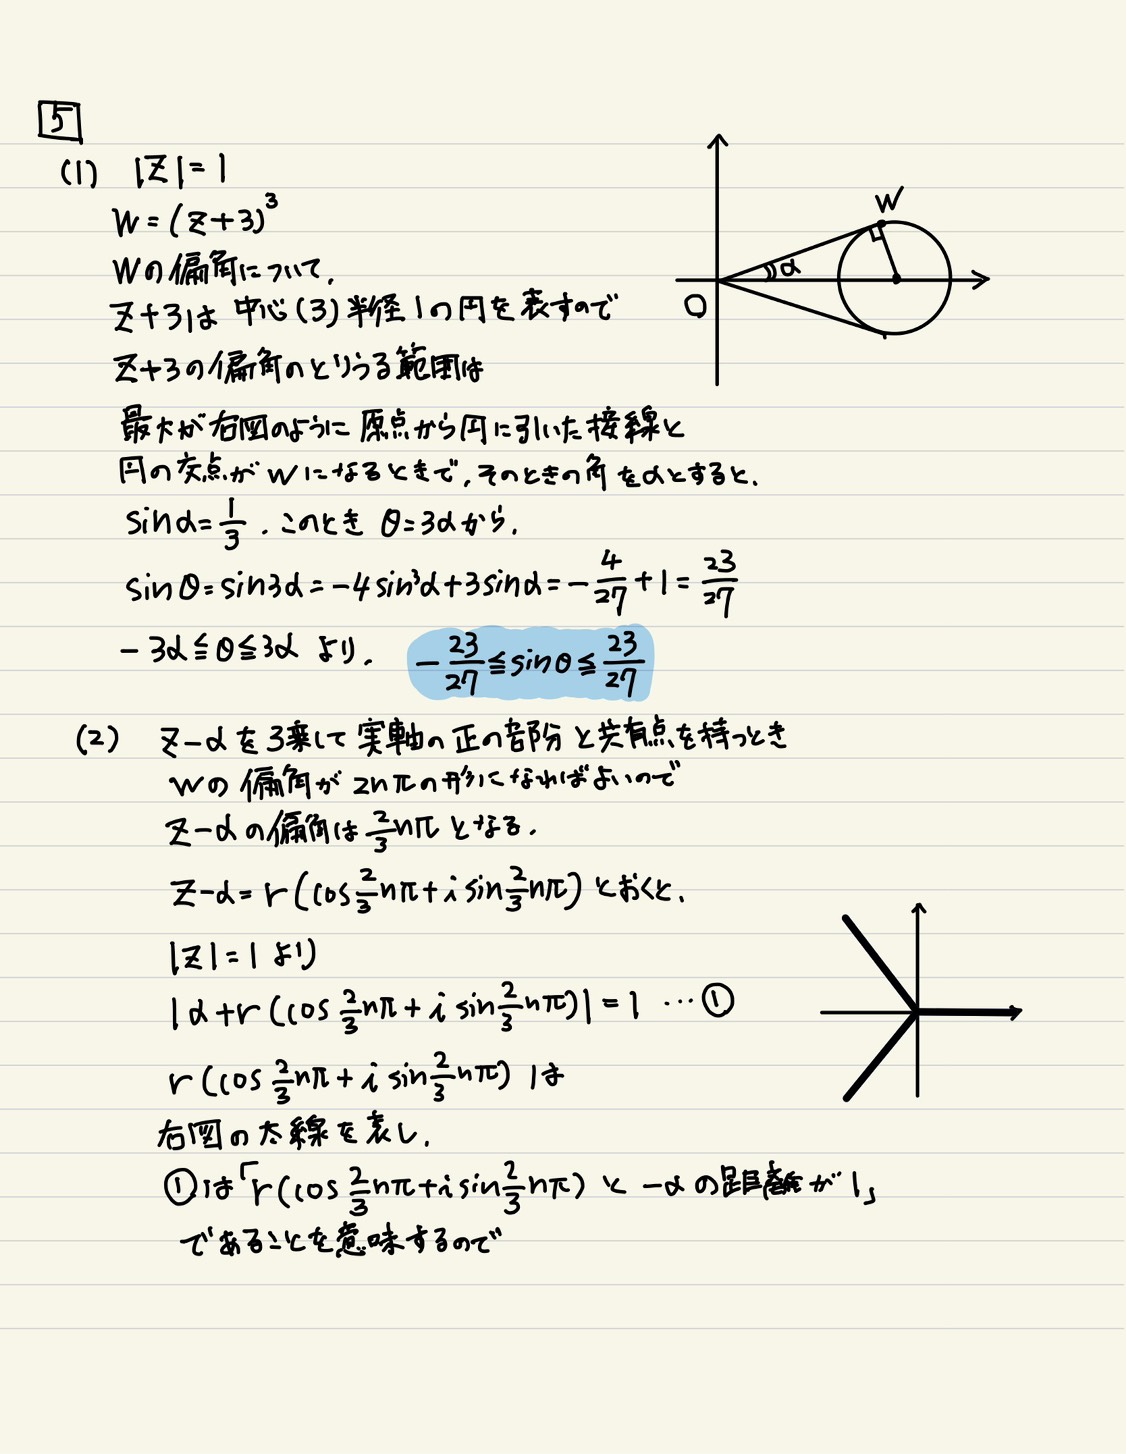 5
(1) |z|=1
w=(z+3)³
wの偏角について、
z+3は 中心(3) 半径1の円を表すので
z+3の偏角のとりうる範囲は
最大が右図のように 原点から円に引いた接線と
円の交点がwになるときで、そのときの角をαとすると、
sinα=1/3 . このとき θ=3αから、
sinθ=sin3α=-4sin³α+3sinα=-4/27+1=23/27
-3α≦θ≦3α より、 -23/27≦sinθ≦23/27
w
α
O
(2) z-αを3乗して実軸の正の部分と共有点を持つとき
wの偏角が2nπの形になればよいので
z-αの偏角は2/3nπとなる.
z-α=r(cos2/3nπ+i sin2/3nπ)とおくと、
|z|=1より
|α+r(cos2/3nπ+i sin2/3nπ)|=1 …①
r(cos2/3nπ+i sin2/3nπ) は
右図の太線を表し、
①は「r(cos2/3nπ+i sin2/3nπ) と -αの距離が1」
であることを意味するので